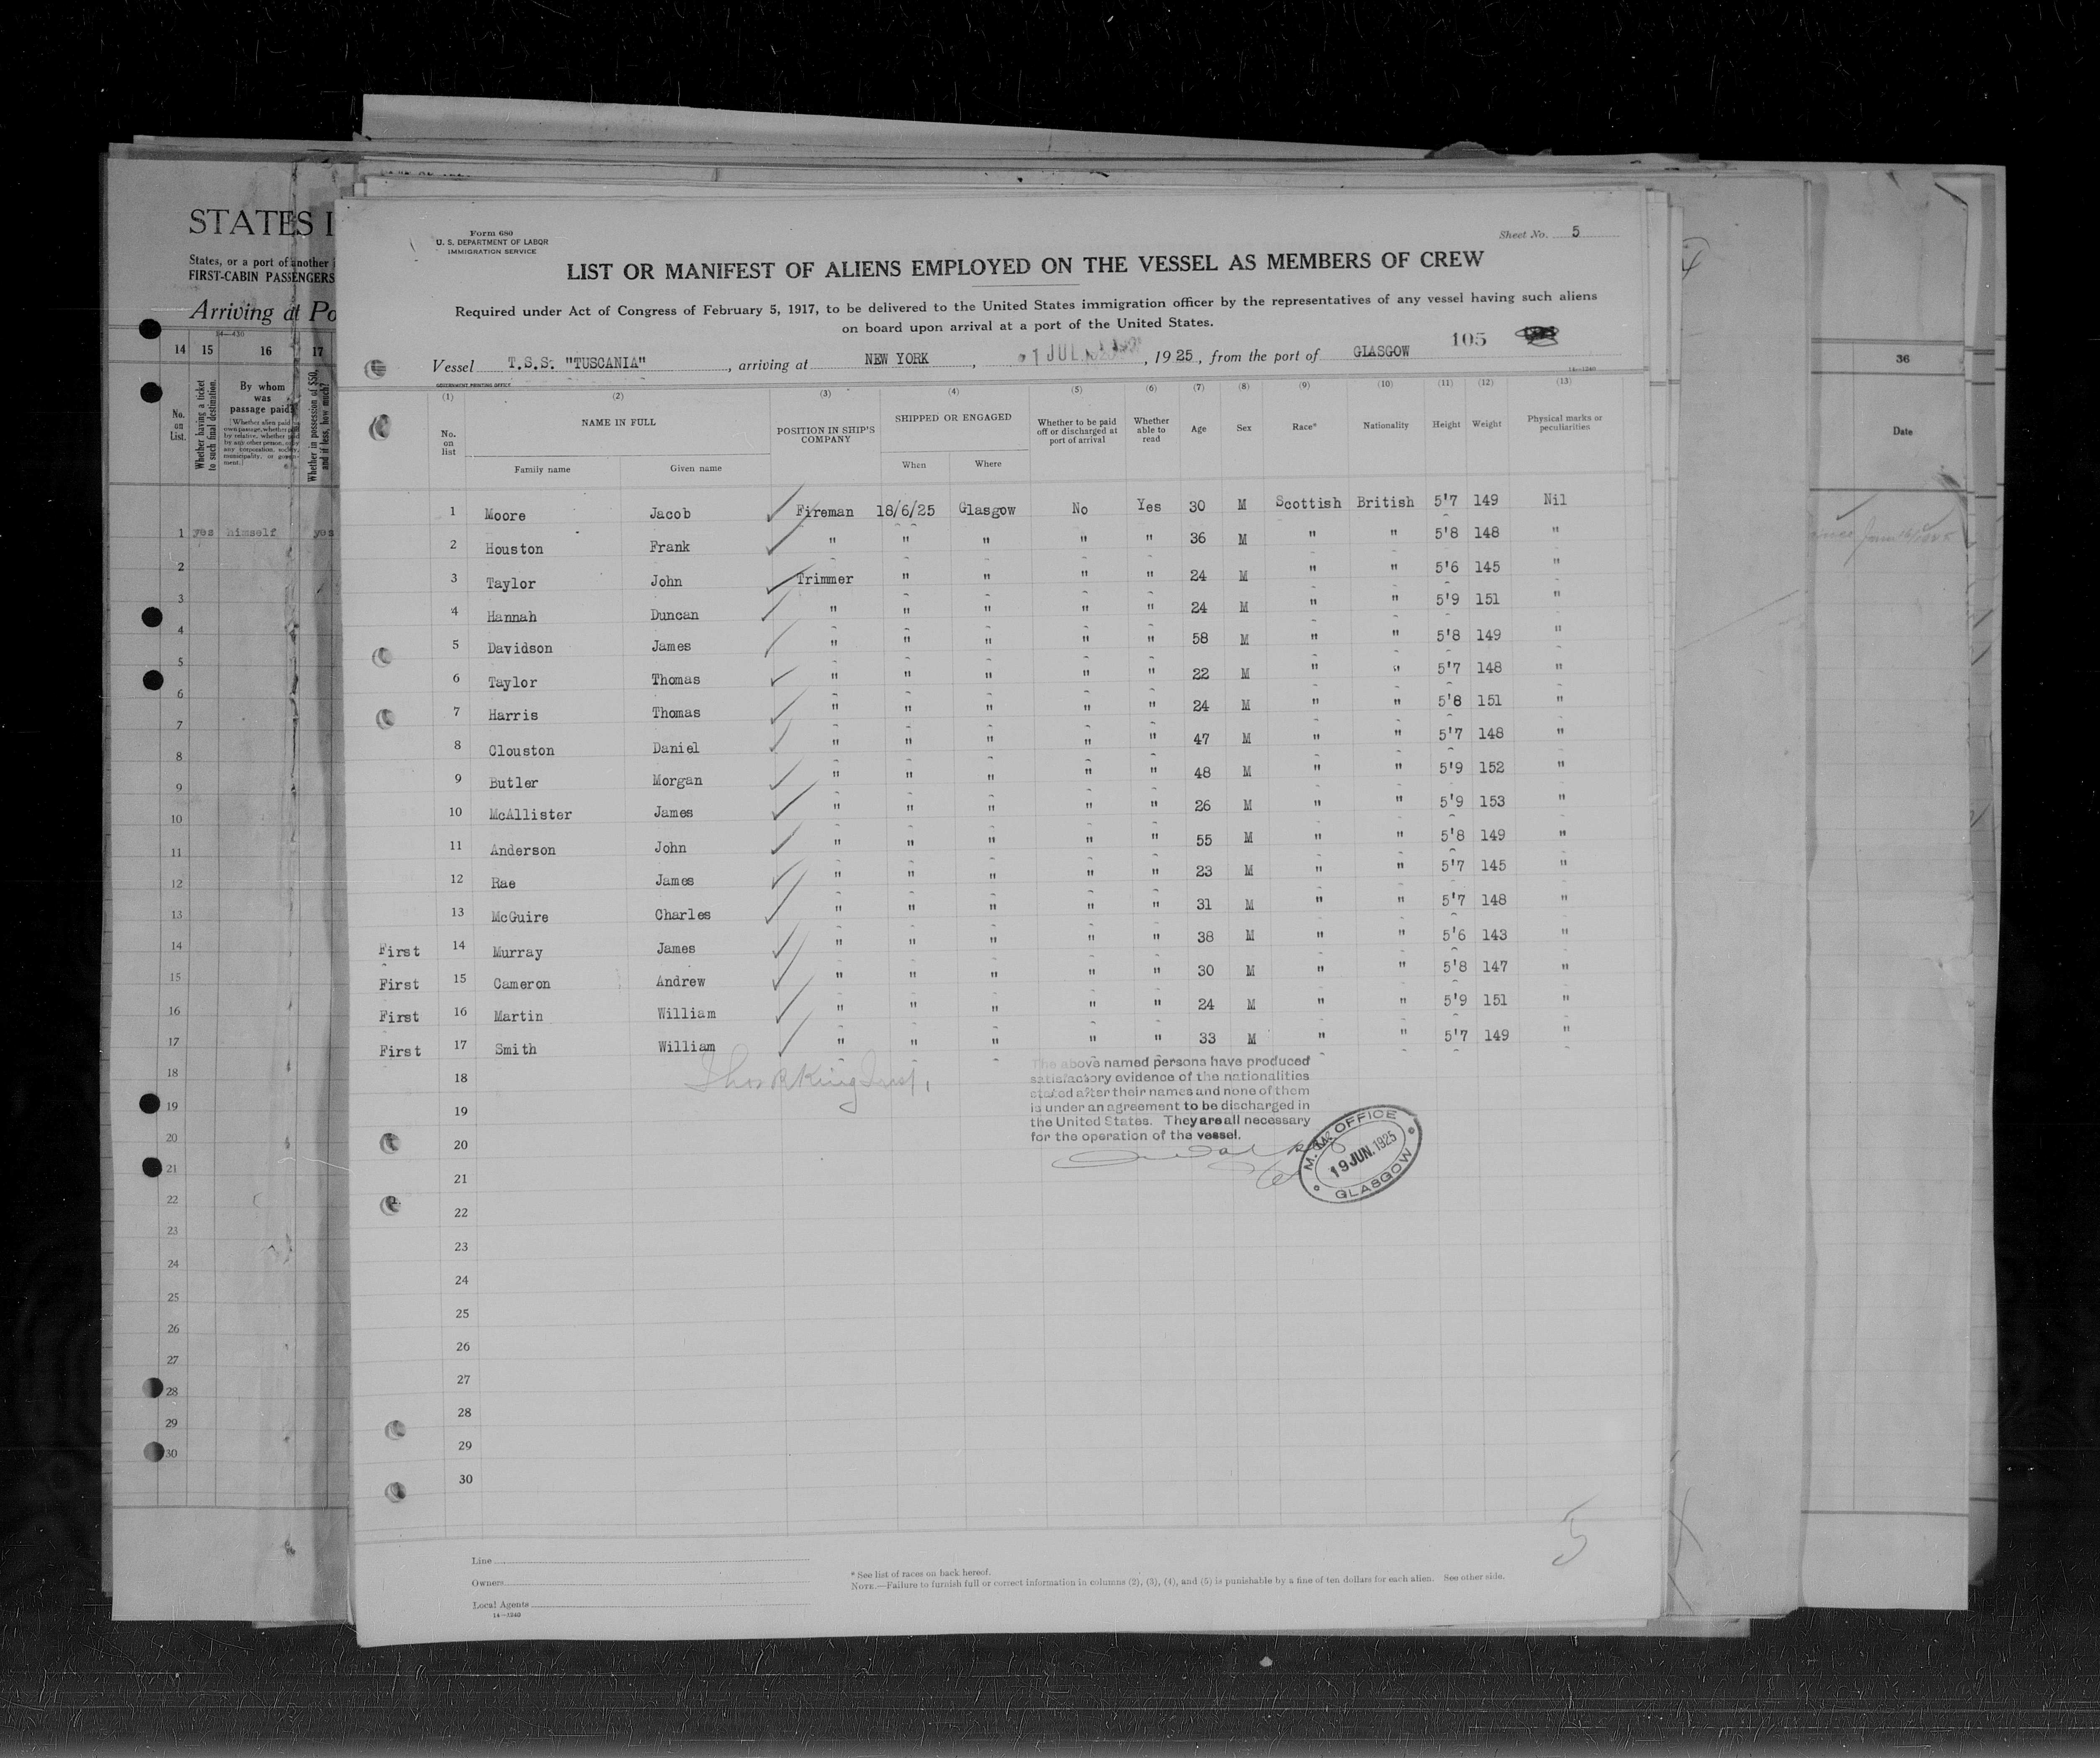 STATES I
States, or a port of another i
FIRST-CABIN PASSENGERS
Arriving at Po
14 15 16 17
No. on List.
Whether having a ticket to such final destination.
By whom was passage paid?
Whether in possession of $50, and if less, how much?
1 yes himself yes
2
3
4
5
6
7
8
9
10
11
12
13
14
15
16
17
18
19
20
21
22
23
24
25
26
27
28
29
30
36
Date
Form 680
U. S. DEPARTMENT OF LABOR
IMMIGRATION SERVICE
Sheet No. 5
LIST OR MANIFEST OF ALIENS EMPLOYED ON THE VESSEL AS MEMBERS OF CREW
Required under Act of Congress of February 5, 1917, to be delivered to the United States immigration officer by the representatives of any vessel having such aliens
on board upon arrival at a port of the United States.
105
Vessel T.S.S. "TUSCANIA", arriving at NEW YORK, 1 JUL, 1925, from the port of GLASGOW
GOVERNMENT PRINTING OFFICE
14—1240
(1) (2) (3) (4) (5) (6) (7) (8) (9) (10) (11) (12) (13)
No. on list
NAME IN FULL
Family name Given name
POSITION IN SHIP'S COMPANY
SHIPPED OR ENGAGED
When Where
Whether to be paid off or discharged at port of arrival
Whether able to read
Age
Sex
Race*
Nationality
Height
Weight
Physical marks or peculiarities
1 Moore Jacob Fireman 18/6/25 Glasgow No Yes 30 M Scottish British 5'7 149 Nil
2 Houston Frank " " " " " 36 M " " 5'8 148 "
3 Taylor John Trimmer " " " " 24 M " " 5'6 145 "
4 Hannah Duncan " " " " " 24 M " " 5'9 151 "
5 Davidson James " " " " " 58 M " " 5'8 149 "
6 Taylor Thomas " " " " " 22 M " " 5'7 148 "
7 Harris Thomas " " " " " 24 M " " 5'8 151 "
8 Clouston Daniel " " " " " 47 M " " 5'7 148 "
9 Butler Morgan " " " " " 48 M " " 5'9 152 "
10 McAllister James " " " " " 26 M " " 5'9 153 "
11 Anderson John " " " " " 55 M " " 5'8 149 "
12 Rae James " " " " " 23 M " " 5'7 145 "
13 McGuire Charles " " " " " 31 M " " 5'7 148 "
First 14 Murray James " " " " " 38 M " " 5'6 143 "
First 15 Cameron Andrew " " " " " 30 M " " 5'8 147 "
First 16 Martin William " " " " " 24 M " " 5'9 151 "
First 17 Smith William " " " " " 33 M " " 5'7 149 "
18
19
20
21
22
23
24
25
26
27
28
29
30
The above named persons have produced
satisfactory evidence of the nationalities
stated after their names and none of them
is under an agreement to be discharged in
the United States. They are all necessary
for the operation of the vessel.
M. M. OFFICE
19 JUN. 1925
GLASGOW
5
Line
Owners
Local Agents
14—1240
* See list of races on back hereof.
NOTE.—Failure to furnish full or correct information in columns (2), (3), (4), and (5) is punishable by a fine of ten dollars for each alien. See other side.